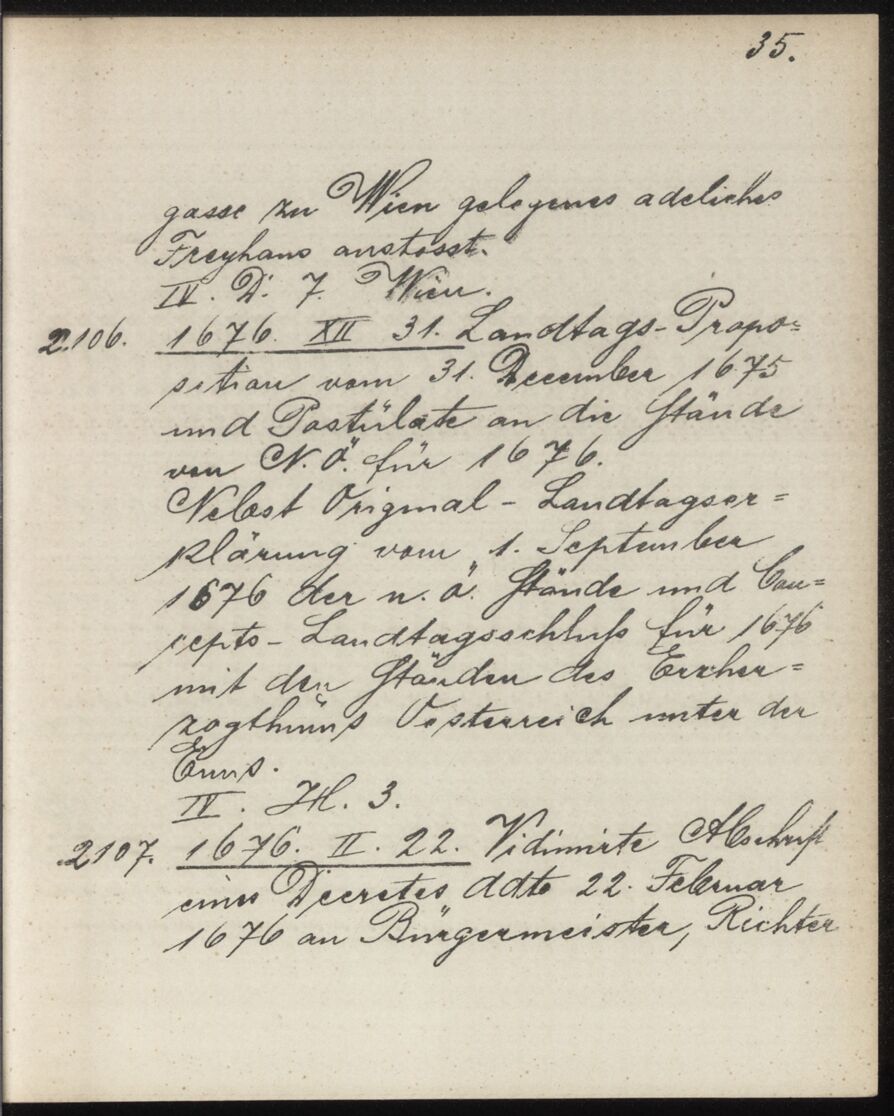 35.
gasse zu Wien gelegenes adeliches
Freyhaus anstosst.
IV. D. 7. Wien.
2.106. 1676. XII 31. Landtags-Propo=
sition vom 31. December 1675
und Postulate an die Stände
von N. Ö. für 1676.
Nebst Original-Landtagser=
klärung vom 1. September
1676 der n. ö. Stände und Con=
cepts-Landtagsschluß für 1676
mit den Ständen des Erzher=
zogthums Oesterreich unter der
Enns.
IV. H. 3.
2107. 1676. II. 22. Vidimirte Abschrift
eines Decretes ddto 22. Februar
1676 an Bürgermeister, Richter